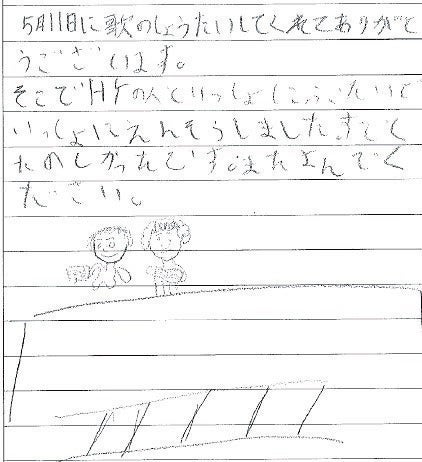 5月11日に歌のしょうたいしてくれてありがと
うございます。
そこでHKの人といっしょにぶたいで
いっしょにえんそうしました。すごく
たのしかったです。またよんでく
ださい。